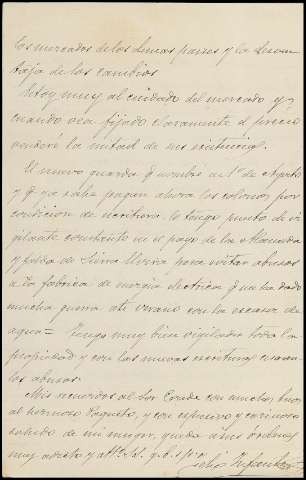 los mercados de los demas paises y la desven-
taja de los cambios
Estoy muy al cuidado del mercado y
cuando vea fijado claramente el precio
venderé la mitad de mis existencias.
El nuevo guarda q nombré en 1º de Agosto
y q ya sabe pagan ahora los colonos por
condicion de escritura, lo tengo puesto de vi-
gilante constante en el pago de la Alameda
y falda de Sierra para evitar abusos
a la fabrica de energia electrica q me ha dado
mucha guerra este verano con la escasez de
agua = Tengo muy bien vigilada toda la
propiedad y con las nuevas escrituras cesaran
los abusos.
Mis recuerdos al Sor Conde con muchos besos
al hermoso Paquito, y con expresivo y cariñoso
saludo de mi mujer, queda a sus órdenes
muy adicto y Affº. S.S. q.b.s.p.
Julio